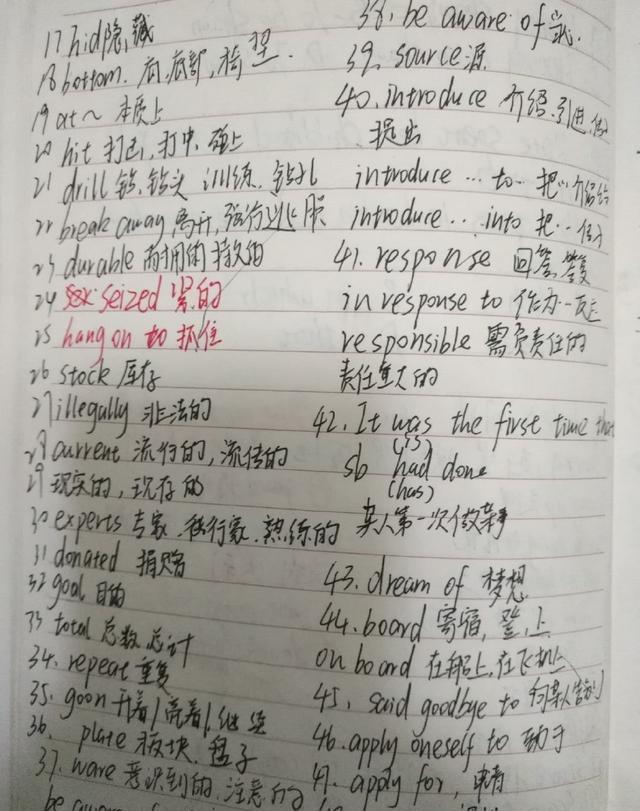 17 hid 隐藏
18 bottom. 底,底部,
19 at~ 本质上
20 hit 打击,打中,碰上
21 drill 钻,钻头 训练,钻孔
22 break away,离开,强行逃脱
23 durable 耐用的 持久的
24 seized 紧的
25 hang on to 抓住
26 stock 库存
27 illegally 非法的
28 current 流行的,流传的
29 现实的,现存的
30 experts 专家.行家.熟练的
31 donated 捐赠
32 goal 目的
33 total 总数 总计
34. repeat 重复
35. go on 开着/亮着/继续
36. plate 板块.盘子
37. ware 意识到的.注意的
be aware
38. be aware of
39. source 源
40. introduce 介绍.引进.
提出
introduce ... to 把...介绍给
introduce ... into 把...
41. response 回答.答复
in response to 作为
responsible 需负责任的
责任重大的
42. It was the first time that
(is)
sb had done
(has)
某人第一次做某事
43. dream of 梦想
44. board 寄宿,登上
on board 在船上,在飞机上
45. said goodbye to 向某人告别
46. apply oneself to
47. apply for, 申请